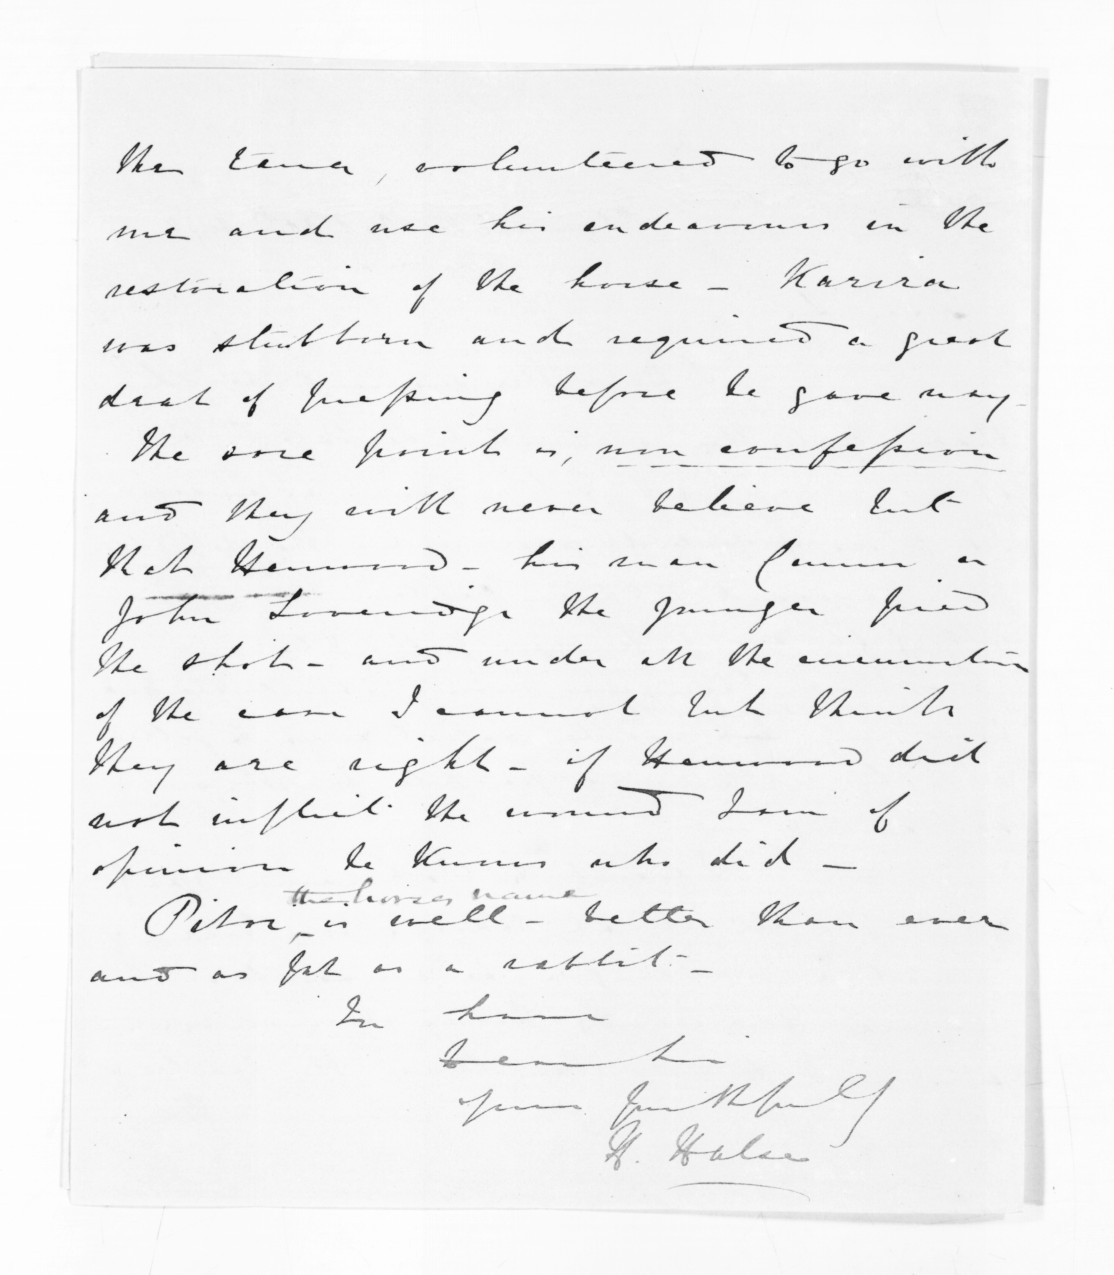 the Tana, volunteered to go with
me and use his endeavours in the
restoration of the horse – Karira
was stubborn and required a great
deal of pressing before he gave way –
The sore point is, non confession
and they will never believe but
that Henwood – his man or
John Loveridge the younger fired
the shot – and under all the circumstances
of the case I cannot but think
they are right – if Henwood did
not inflict the wound I am of
opinion he knows who did –
the horses name
Pitoi, is well – better than ever
and as fat as a rabbit –
In haste
Dear Sir
yours faithfully
H. Halse